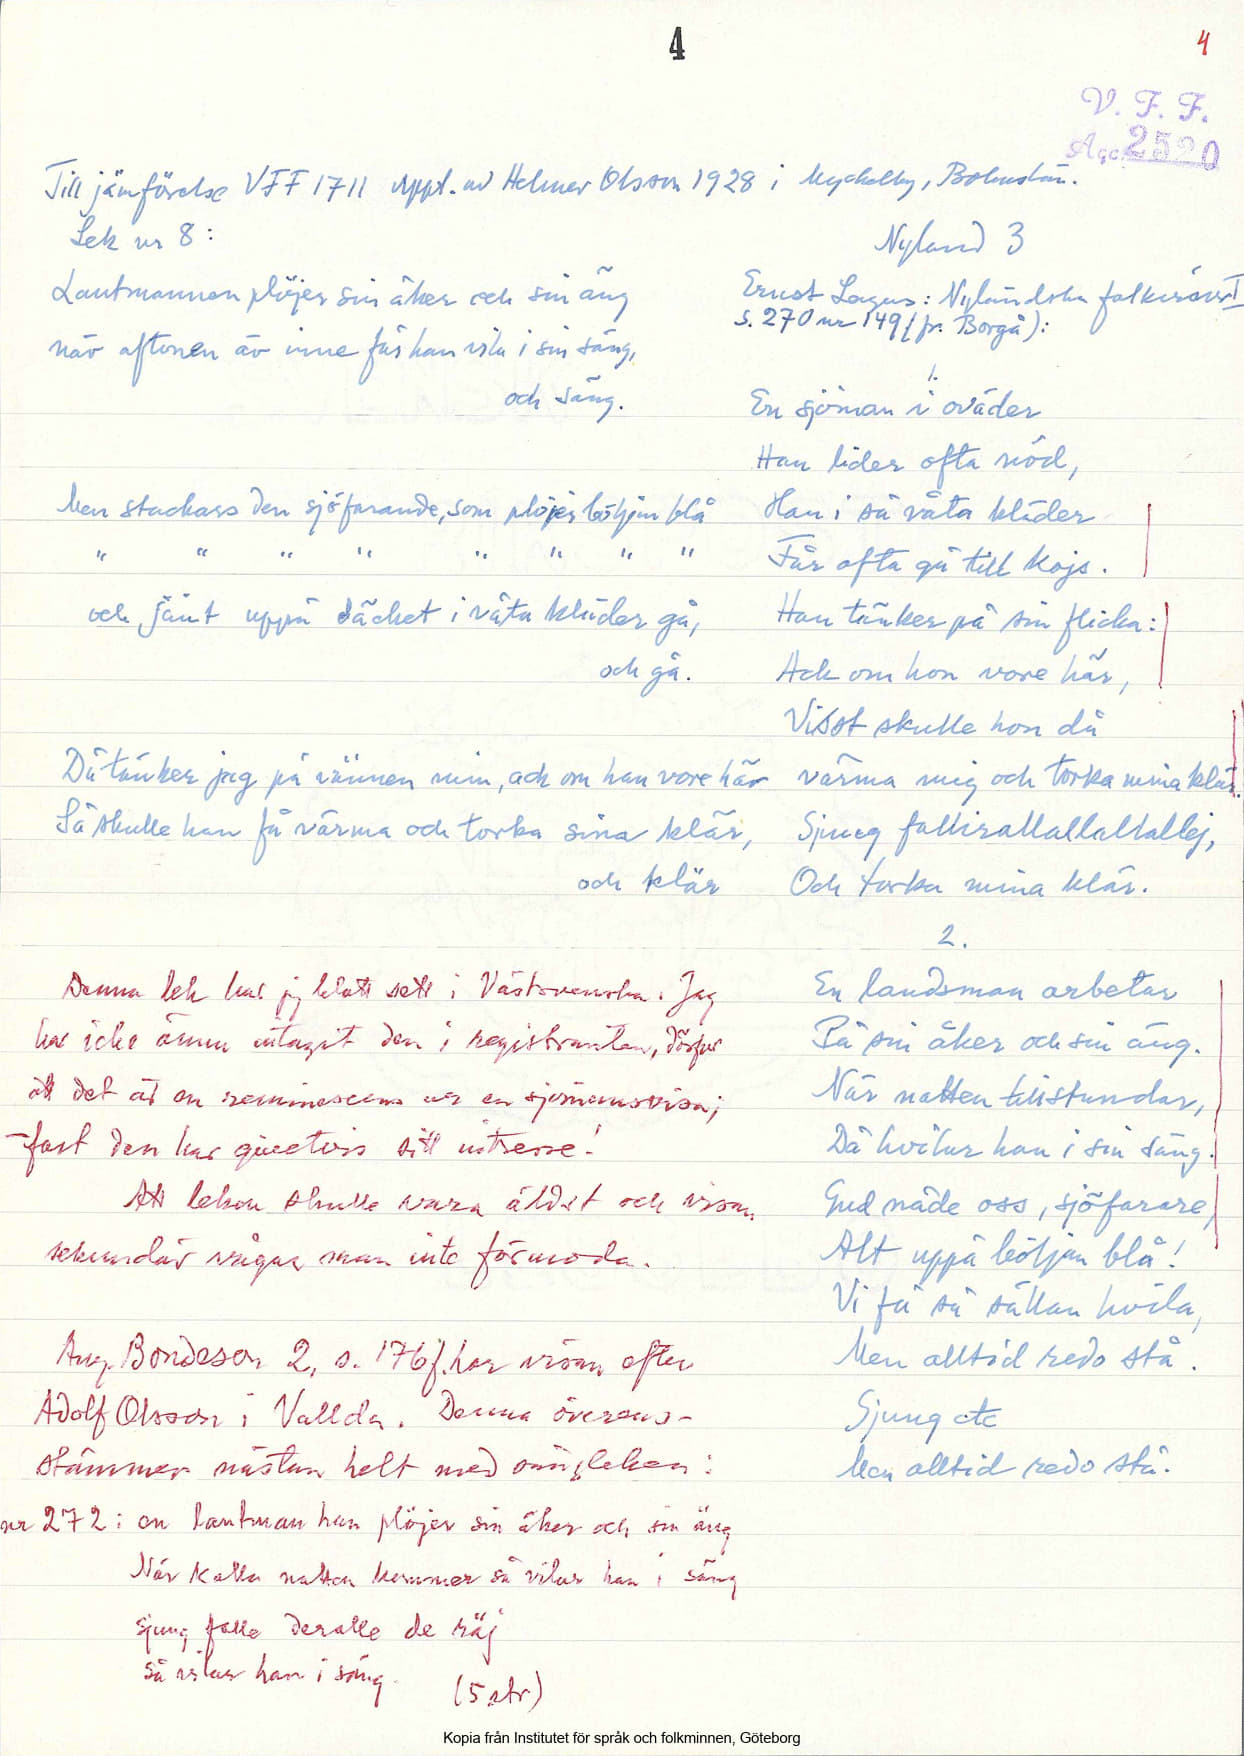 4
4
V. F. F.
Acc. 2520
Till jämförelse VFF 1711 uppt. av Helmer Olsson 1928 i Myckleby, Bohuslän.
Lek nr 8:
Lantmannen plöjer sin åker och sin äng
när aftonen är inne får han vila i sin säng,
och säng.
Men stackars den sjöfarande, som plöjer böljan blå
" " " " " " " "
och jämt uppå däcket i våta kläder gå,
och gå.
Då tänker jag på vännen min, ack om han vore här
Så skulle han få värma och torka sina klär,
och klär
Denna lek har jg blott sett i Västsvenska. Jag
har icke ännu intagit den i registranten, därför
att det är en reminiscens av en sjömansvisa;
– fast den har givetvis sitt intresse!
Att leken skulle vara äldst och visan
sekundär vågar man inte förmoda.
Aug. Bondeson 2, s. 176 f. har visan efter
Adolf Olsson i Vallda. Denna överens-
stämmer nästan helt med sångleken:
nr 272: en lantman han plöjer sin åker och sin äng
När kalla natten kommer så vilar han i säng
sjung falle deralle de räj
så vilar han i säng.
(5 str)
Nyland 3
Ernst Lagus: Nyländska folkvisor I
s. 270 nr 149 (fr. Borgå):
1.
En sjöman i oväder
Han lider ofta nöd,
Han i så våta kläder
Får ofta gå till kojs.
Han tänker på sin flicka:
Ack om hon vore här,
Visst skulle hon då
värma mig och torka mina klär.
Sjung falliralallallallej,
Och torka mina klär.
2.
En landsman arbetar
På sin åker och sin äng.
När natten tillstundar,
Då hvilar han i sin säng.
Gud nåde oss, sjöfarare,
Alt uppå böljan blå!
Vi få så sällan hvila,
Men alltid redo stå.
Sjung etc
Men alltid redo stå.
Kopia från Institutet för språk och folkminnen, Göteborg